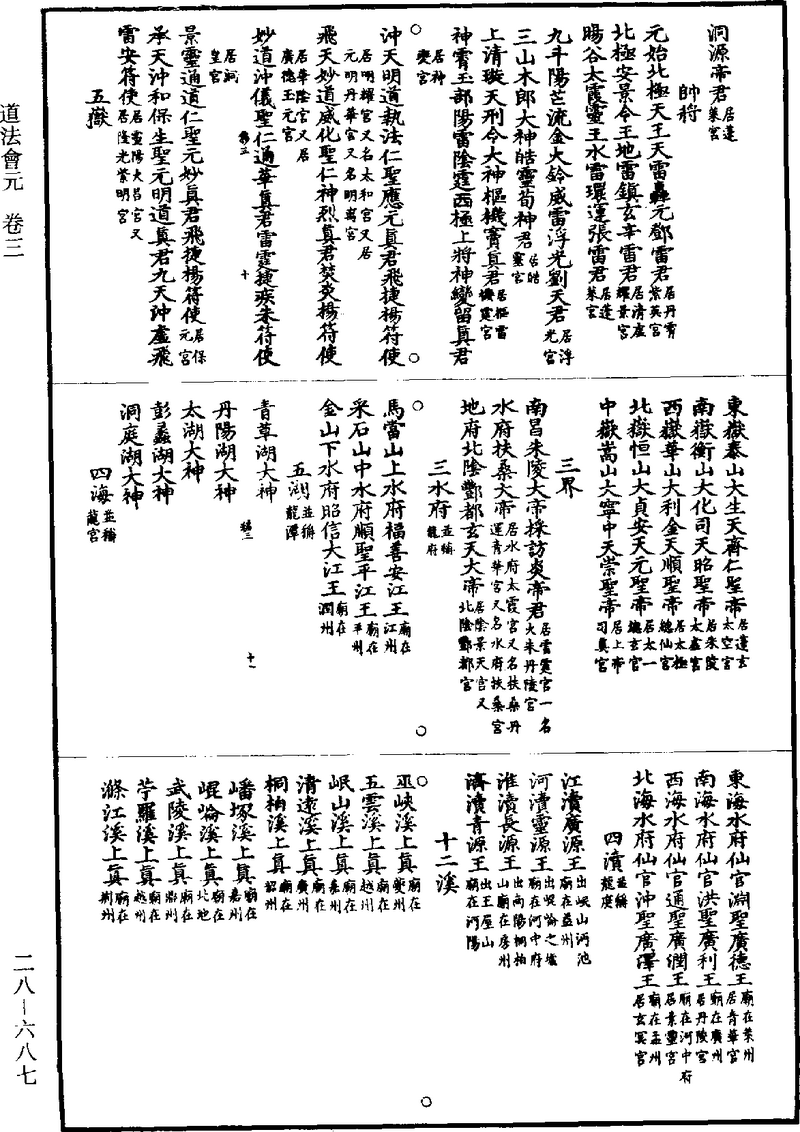 道法會元　卷三
二八－六八七
洞源帝君居蓬萊宮
帥將
元始北極天王天雷轟元鄧雷君居丹霄紫英宮
北極安景令王地雷鎮玄辛雷君居清虛曜景宮
暘谷太霞靈王水雷環運張雷君居蓬萊宮
九斗陽芒流金火鈴威雷浮光劉天君居浮光宮
三山木郎大神皓靈荀神君居皓靈宮
上清璇天刑令大神樞機竇真君居樞雷機霆宮
神霄玉部陽雷陰霆西極上將神變留真君居神變宮
沖天明道執法仁聖應元真君飛捷楊符使居明耀宮又名太和宮又居元明丹華宮又名明离宮
飛天妙道威化聖仁神烈真君焚炎楊符使居華陰宮又居廣德玉元宮
妙道沖儀聖仁通華真君雷霆捷疾朱符使居洞皇宮
景靈通道仁聖元妙真君飛捷楊符使居保元宮
承天沖和保生聖元明道真君九天沖虛飛
雷安符使居靈陽火呂宮又居隆光紫明宮
五嶽
東嶽泰山大生天齊仁聖帝居蓬玄太空宮
南嶽衡山大化司天昭聖帝居朱陵太虛宮
西嶽華山大利金天順聖帝居太極總仙宮
北嶽恒山大貞安天元聖帝居太一總玄宮
中嶽嵩山大寧中天崇聖帝居上帝司真宮
三界
南昌朱陵大帝採訪炎帝君居雲霆宮一名火朱丹陵宮
水府扶桑大帝居水府太霞宮又名扶桑丹運青華宮又名水府扶桑宮
地府北陰酆都玄天大帝居陰景天宮又北陰酆都宮
三水府並稱龍府
馬當山上水府福善安江王廟在江州
采石山中水府順聖平江王廟在平州
金山下水府昭信大江王廟在潤州
五湖並稱龍潭
青草湖大神
丹陽湖大神
太湖大神
彭蠡湖大神
洞庭湖大神
四海並稱龍宮
東海水府仙官淵聖廣德王廟在萊州居青華宮
南海水府仙官洪聖廣利王廟在廣州居丹陵宮
西海水府仙官通聖廣潤王廟在河中府居景靈宮
北海水府仙官沖聖廣澤王廟在孟州居玄冥宮
四瀆並稱龍庚
江瀆廣源王出岷山沔池廟在益州
河瀆靈源王出崐崘之墟廟在河中府
淮瀆長源王出南陽桐柏山廟在唐州
濟瀆青源王出王屋山廟在河陽
十二溪
巫峽溪上真廟在夔州
五雲溪上真廟在越州
岷山溪上真廟在嘉州
清遠溪上真廟在廣州
桐柏溪上真廟在韶州
嶓塚溪上真廟在嘉州
崐崘溪上真廟在北地
武陵溪上真廟在鼎州
苧羅溪上真廟在越州
滌江溪上真廟在荆州